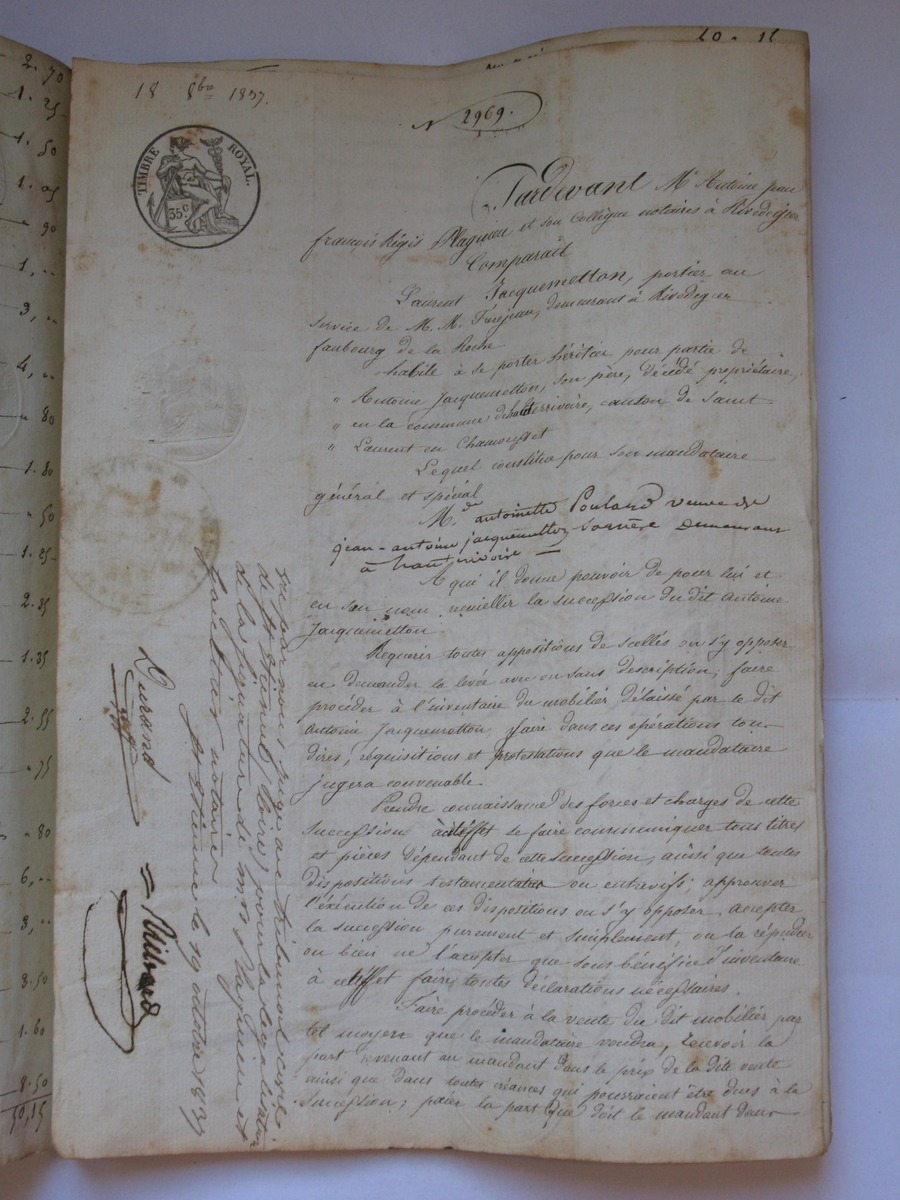 2.70
1.25
1.50
1.05
90
1,..
3,..
4,..
80
1.80
50
1.25
2.85
1.35
2.55
75
80
6,..
3,..
3.50
1.60
8.50
50,15
10 - 15
18 8bre 1837.
N 2969.
TIMBRE ROYAL.
35c
Pardevant Me Antoine jean
françois Régis Plagnieu et son Collègue notaires à Rivedegier
Comparait
Laurent Jacquemetton, portier au
service de M. M. Furejean, demeurant à Rivedegier
faubourg de la Roche
habile à se porter héritier pour partie de
" Antoine Jacquemetton, son père, décédé propriétaire,
" en la commune de hauterrivoire, canton de Saint-
" Laurent en Chamousset
Lequel constitue pour son mandataire
général et spécial
Mde antoinette Poulard veuve de
jean-antoine jacquemetton demeurant
à hauterivoire
A qui il donne pouvoir de pour lui et
en son nom, recueillir la succession du dit Antoine
Jacquemetton
Requerir toutes appositions de scellés ou s'y opposer
en demander la levée avec ou sans description; faire
procéder à l'inventaire du mobilier délaissé par le dit
Antoine Jacquemetton, faire dans ces opérations tous
dires, réquisitions et protestations que le mandataire
jugera convenable.
Prendre connaissance des forces et charges de cette
succession à cet effet se faire communiquer tous titres
et pièces dépendant de cette succession, ainsi que toutes
dispositions testamentaires ou entrevifs; approuver
l'éxécution de ces dispositions ou s'y opposer, accepter
la succession purement et simplement, ou la répudier
ou bien ne l'accepter que sous bénéfice d'inventaire
à cet effet faire toutes déclarations nécessaires.
Faire procéder à la vente du dit mobilier par
tel moyen que le mandataire voudra, recevoir la
part revenant au mandant dans le prix de la dite vente
ainsi que dans toutes créances qui pourraient être dues à la
succession; payer la part que doit le mandant dans
vu par nous juge au tribunal civil
de St Etienne, Loire, pour la légalisation
de la signature de mtre Plagnieu et
notaires
St Etienne le 19 octobre 1837
Durand